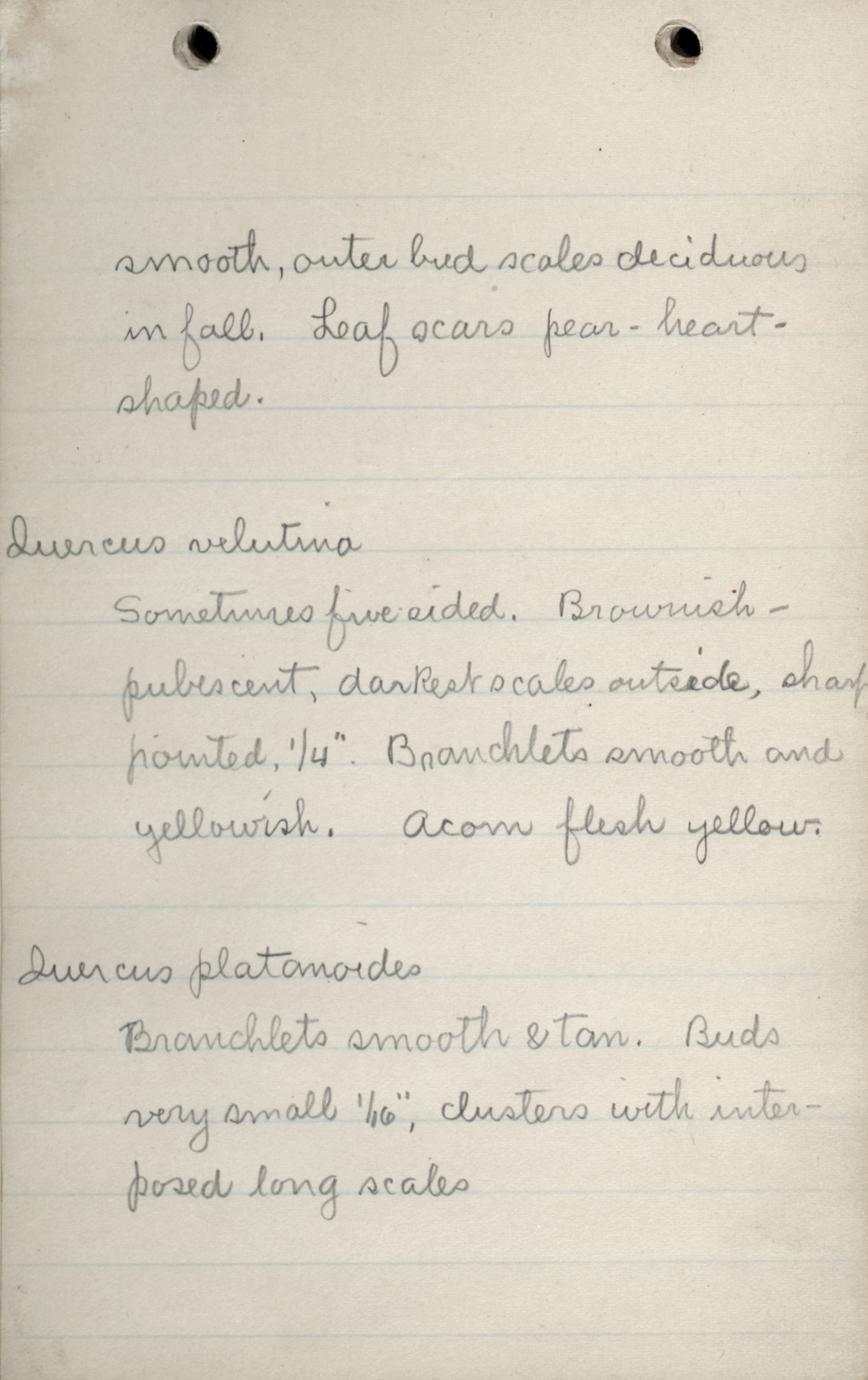 smooth, outer bud scales deciduous
in fall. Leaf scars pear - heart-
shaped.
Quercus velutina
Sometimes five sided. Brownish -
pubescent, darkest scales outside, sharp
pointed, 1/4". Branchlets smooth and
yellowish. Acorn flesh yellow.
Quercus platanoides
Branchlets smooth & tan. Buds
very small 1/16", clusters with inter-
posed long scales